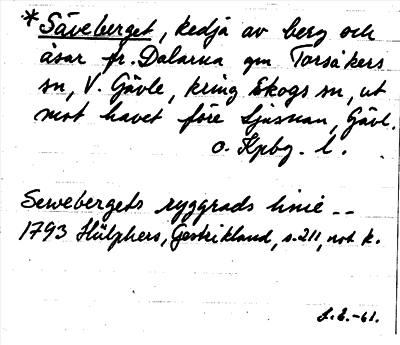 *Säveberget, kedja av berg och
åsar fr. Dalarna gm Torsåkers
sn, V. Gävle, kring Skogs sn, ut
mot havet före Ljusnan, Gävl.
o. Kpbg. l.
Sevebergets ryggrads linie --
1793 Hülphers, Gestrikland, s. 211, not k.
S.E.-61.